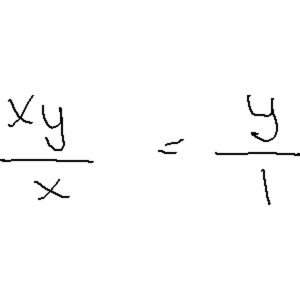 xy/x = y/1